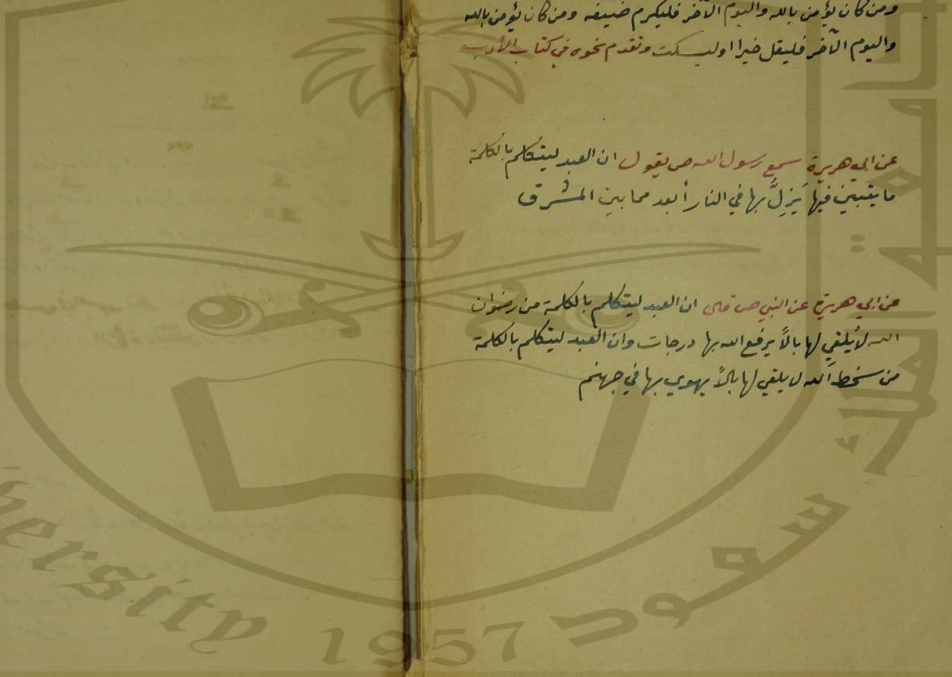 ومن كان يؤمن بالله واليوم الآخر فليكرم ضيفه ومن كان يؤمن بالله
واليوم الآخر فليقل خيرا او ليسكت وتقدم نحوه في كتاب الأدب
عن ابي هريرة سمع رسول الله ص يقول ان العبد ليتكلم بالكلمة
ما يتبين فيها يَزِلُّ بها في النار أبعد مما بين المشرق
عن ابي هريرة عن النبي ص قال ان العبد ليتكلم بالكلمة من رضوان
الله لا يُلقي لها بالاً يرفع الله بها درجات وان العبد ليتكلم بالكلمة
من سخط الله لا يلقي لها بالاً يهوي بها في جهنم
جامعة الملك سعود
University
1957